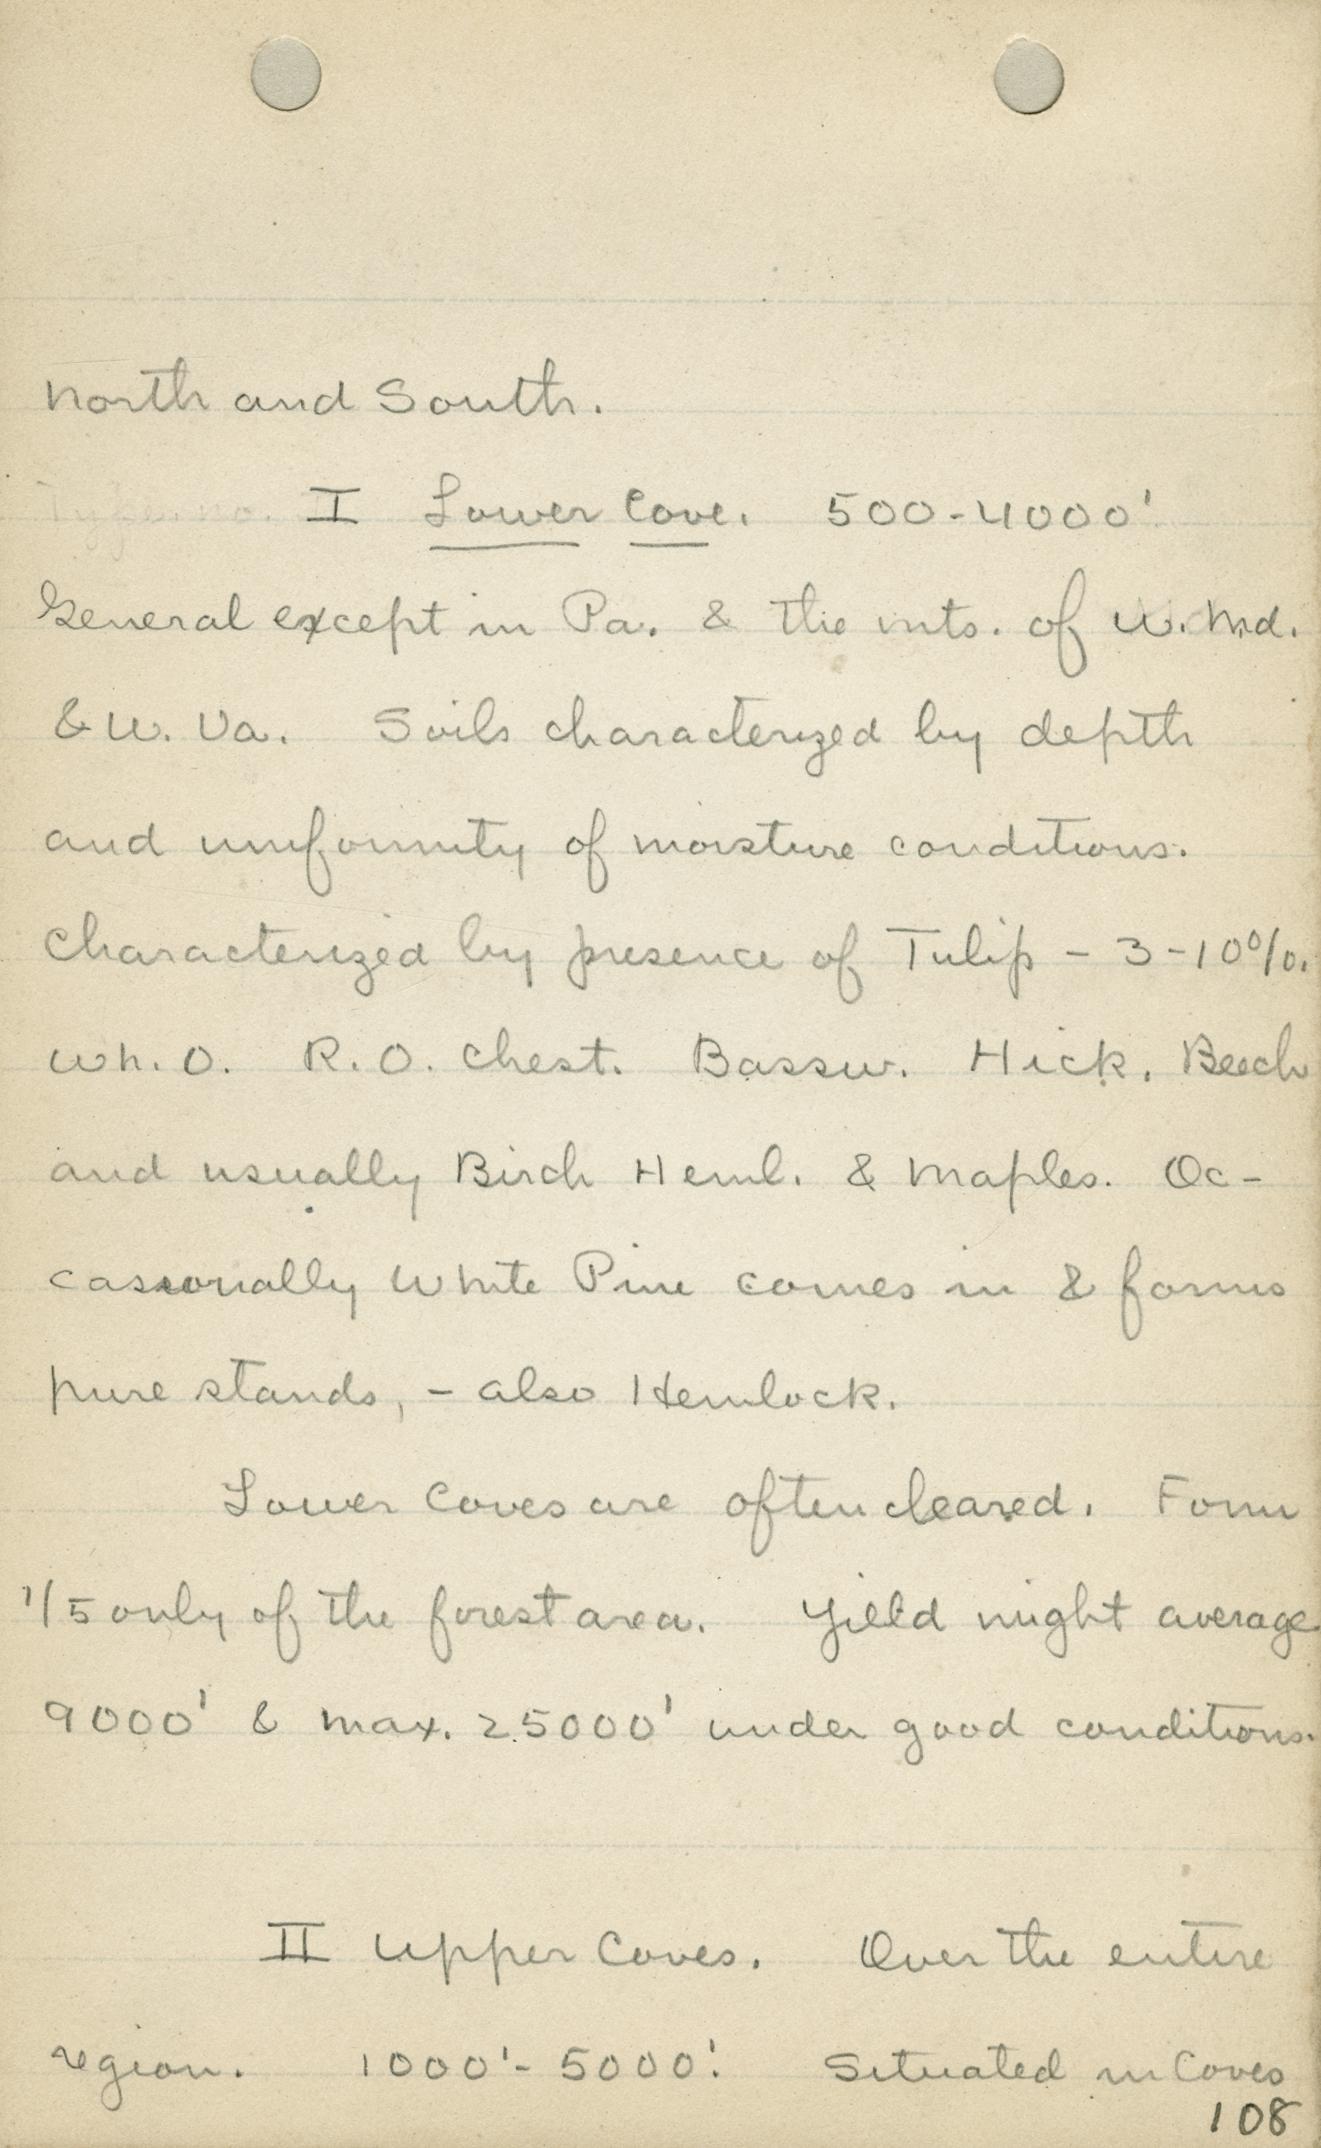 North and South.
Type. no. I Lower Cove. 500-4000'
General except in Pa. & the mts. of W. Md.
& W. Va. Soils characterized by depth
and uniformity of moisture conditions.
Characterized by presence of Tulip - 3-10%.
Wh. O. R. O. Chest. Bassw. Hick. Beech
and usually Birch Heml. & Maples. Oc-
cassionally White Pine comes in & forms
pure stands, - also Hemlock.
Lower Coves are often cleared. Form
1/5 only of the forest area. Yield might average
9000' & max. 25000' under good conditions.
II Upper Coves. Over the entire
region. 1000'- 5000'. Situated in Coves
108